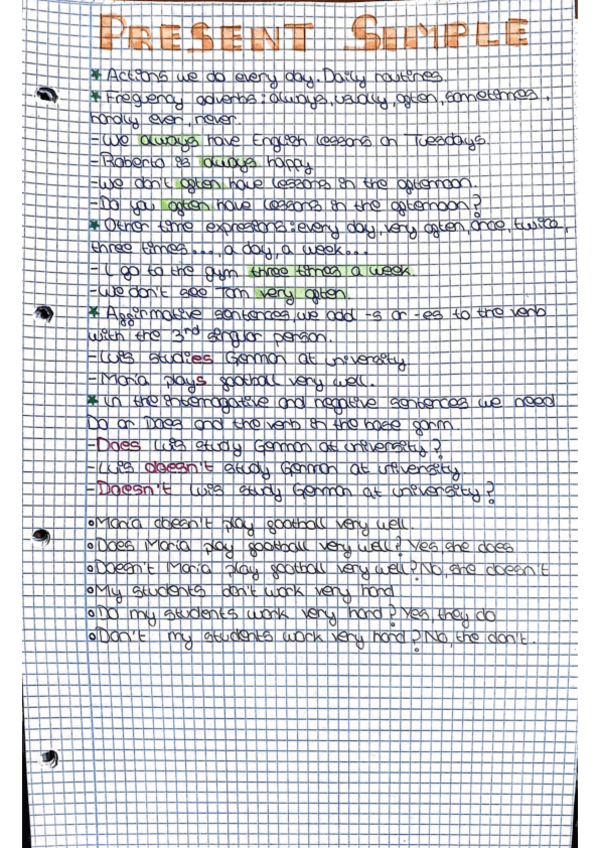 PRESENT SIMPLE
* Actions we do every day. Daily routines.
* Frequency adverbs: always, usually, often, sometimes,
hardly ever, never.
- We always have English lessons on Tuesdays.
- Roberto is always happy
- We don't often have lessons in the afternoon.
- Do you often have lessons in the afternoon?
* Other time expressions: every day, very often, once, twice,
three times..., a day, a week...
- I go to the gym three times a week.
- We don't see Tom very often.
* Affirmative sentences, we add -s or -es to the verb
with the 3rd singular person.
- Luis studies German at university
- Maria plays football very well.
* In the interrogative and negative sentences we need
Do or Does and the verb in the base form.
- Does Luis study German at university?
- Luis doesn't study German at university
- Doesn't Luis study German at university?
• Maria doesn't play football very well.
• Does Maria play football very well? Yes, she does
• Doesn't Maria play football very well? No, she doesn't
• My students don't work very hard
• Do my students work very hard? Yes, they do
• Don't my students work very hard? No, the don't.